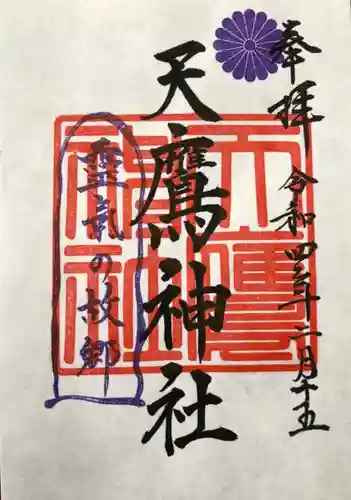 奉拝
令和四年二月十五
天鷹神社
靈氣の故郷
天鷹神社